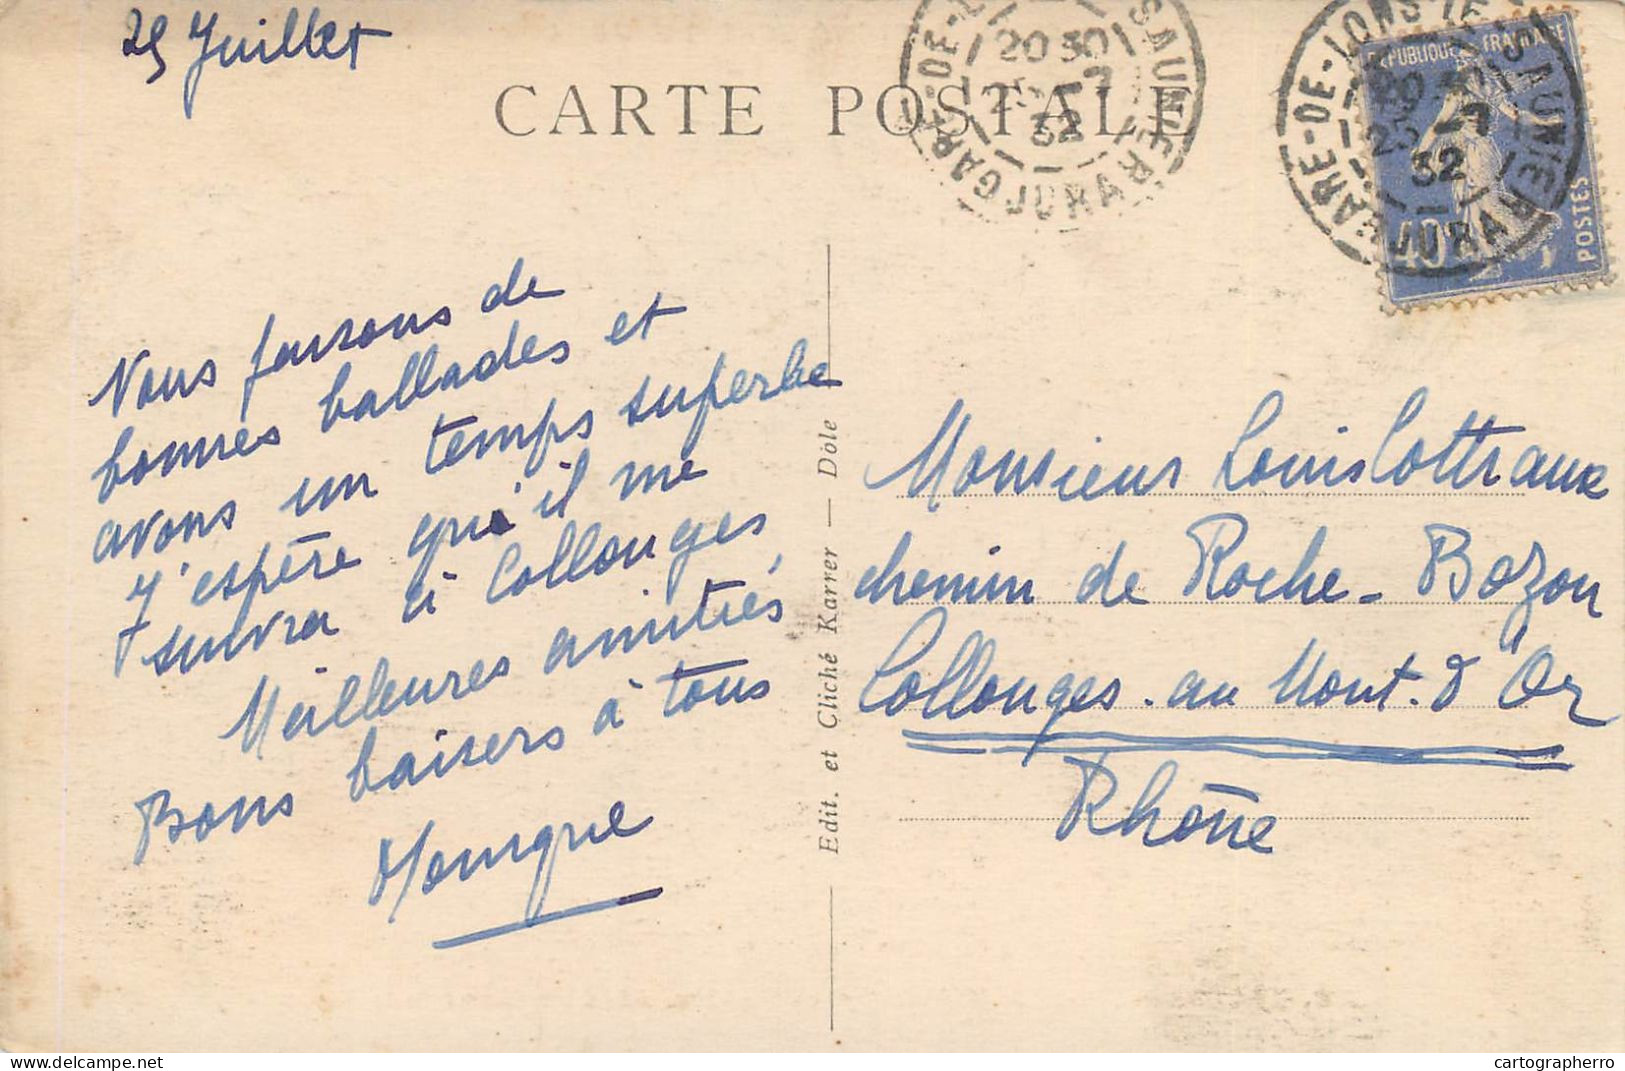 25 Juillet
CARTE POSTALE
GARE-DE-LONS-LE-SAUNIER
20 30
25 -7
32
JURA
GARE-DE-LONS-LE-SAUNIER
20 30
25 -7
32
JURA
REPUBLIQUE FRANÇAISE
40c
POSTES
Nous faisons de
bonnes ballades et
avons un temps superbe
J'espère qu'il me
suivra à Collonges,
Meilleures amitiés,
Bons baisers à tous
Edit. et Cliché Karrer — Dôle
Monsieur Louis Cottraux
chemin de Roche-Bozon
Collonges-au Mont-d'Or
Rhône
delcampe.net
cartographerro